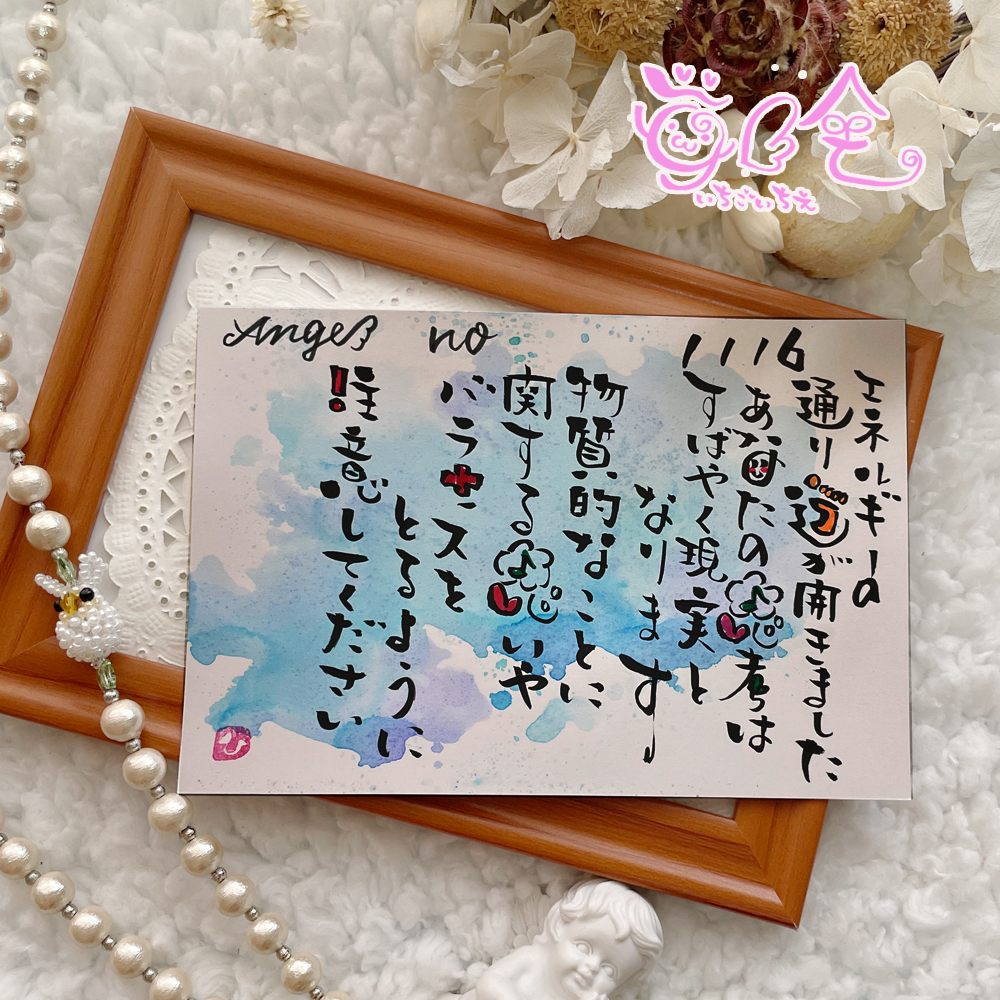 いちごいちえ
Angel no 1116
エネルギーの
通り道が開きました
あなたの思考は
すばやく現実と
なります
物質的なことに
関する思いや
バランスを
とるように
注意してください
ひ